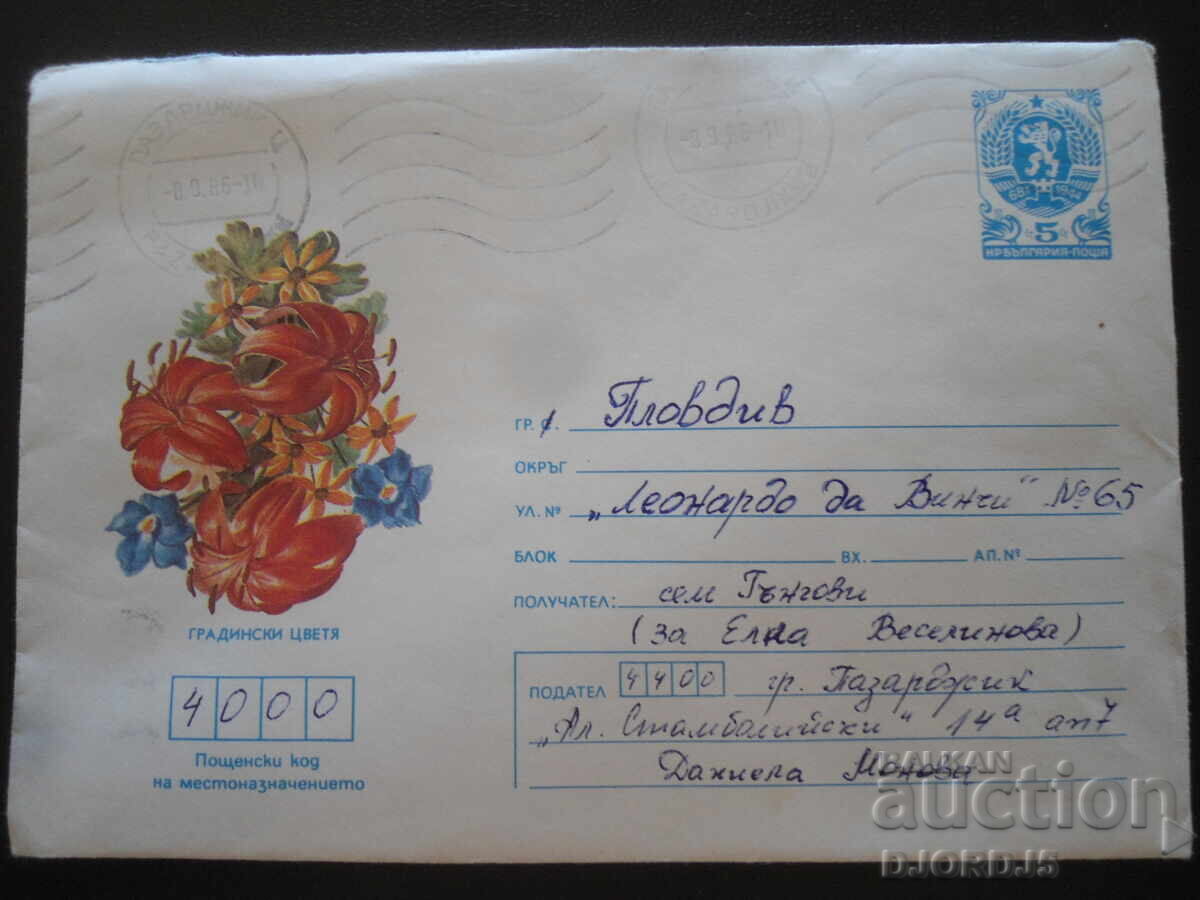 ПАЗАРДЖИК Ц
-8.9.86-11
-8.9.86-11
681 1944
5
НР БЪЛГАРИЯ·ПОЩА
ГР. С. Пловдив
ОКРЪГ
УЛ. № „Леонардо да Винчи" № 65
БЛОК ВХ. АП. №
ПОЛУЧАТЕЛ: сем Гънгови
(за Елка Веселинова)
ГРАДИНСКИ ЦВЕТЯ
4000
Пощенски код
на местоназначението
ПОДАТЕЛ 4400 гр. Пазарджик
„Ал. Стамболийски" 14а ап7
Даниела Монова
BALKAN
auction
DJORDJ5